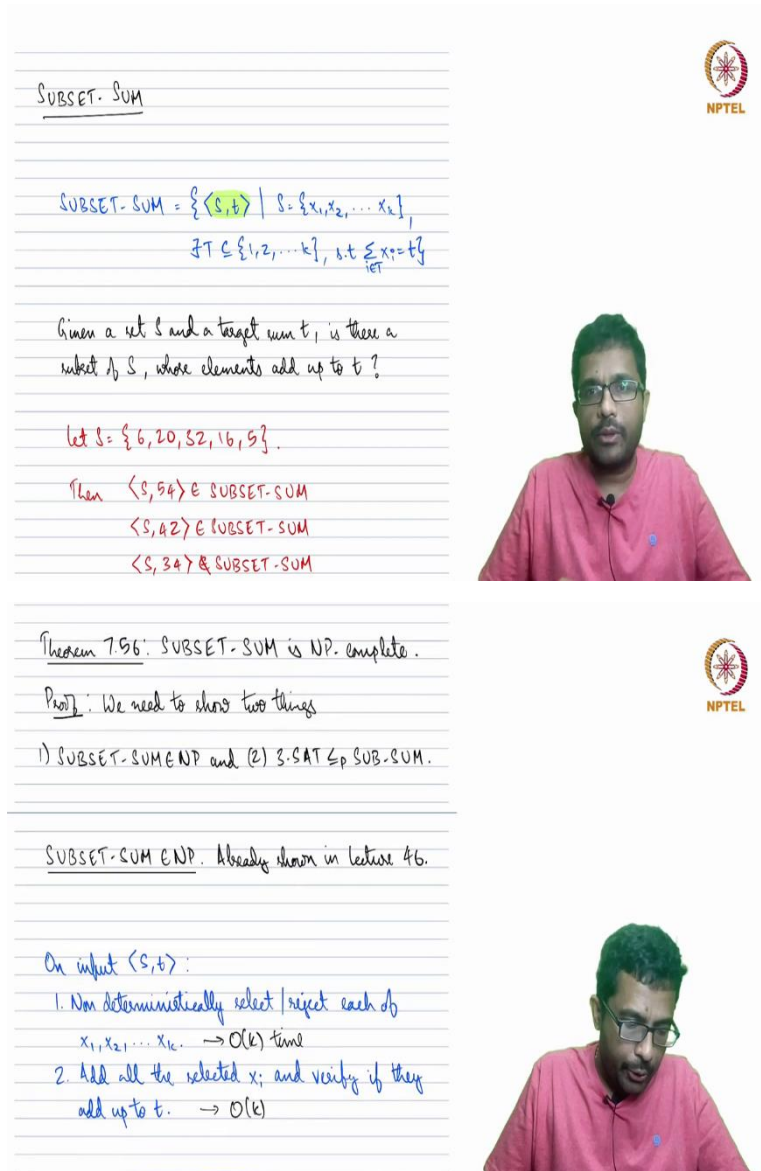 SUBSET-SUM
NPTEL
SUBSET-SUM = {⟨S,t⟩ | S={x₁,x₂,...xₖ},
∃T⊆{1,2,...k}, s.t Σ_{i∈T} xᵢ=t}
Given a set S and a target sum t, is there a
subset of S, whose elements add up to t?
Let S={6,20,32,16,5}.
Then ⟨S,54⟩ ∈ SUBSET-SUM
⟨S,42⟩ ∈ SUBSET-SUM
⟨S,34⟩ ∉ SUBSET-SUM
Theorem 7.56: SUBSET-SUM is NP-complete.
NPTEL
Proof: We need to show two things
1) SUBSET-SUM∈NP and (2) 3-SAT ≤ₚ SUB-SUM.
SUBSET-SUM ∈NP. Already shown in lecture 46.
On input ⟨S,t⟩:
1. Non deterministically select | reject each of
x₁,x₂,...xₖ. → O(k) time
2. Add all the selected xᵢ and verify if they
add up to t. → O(k)